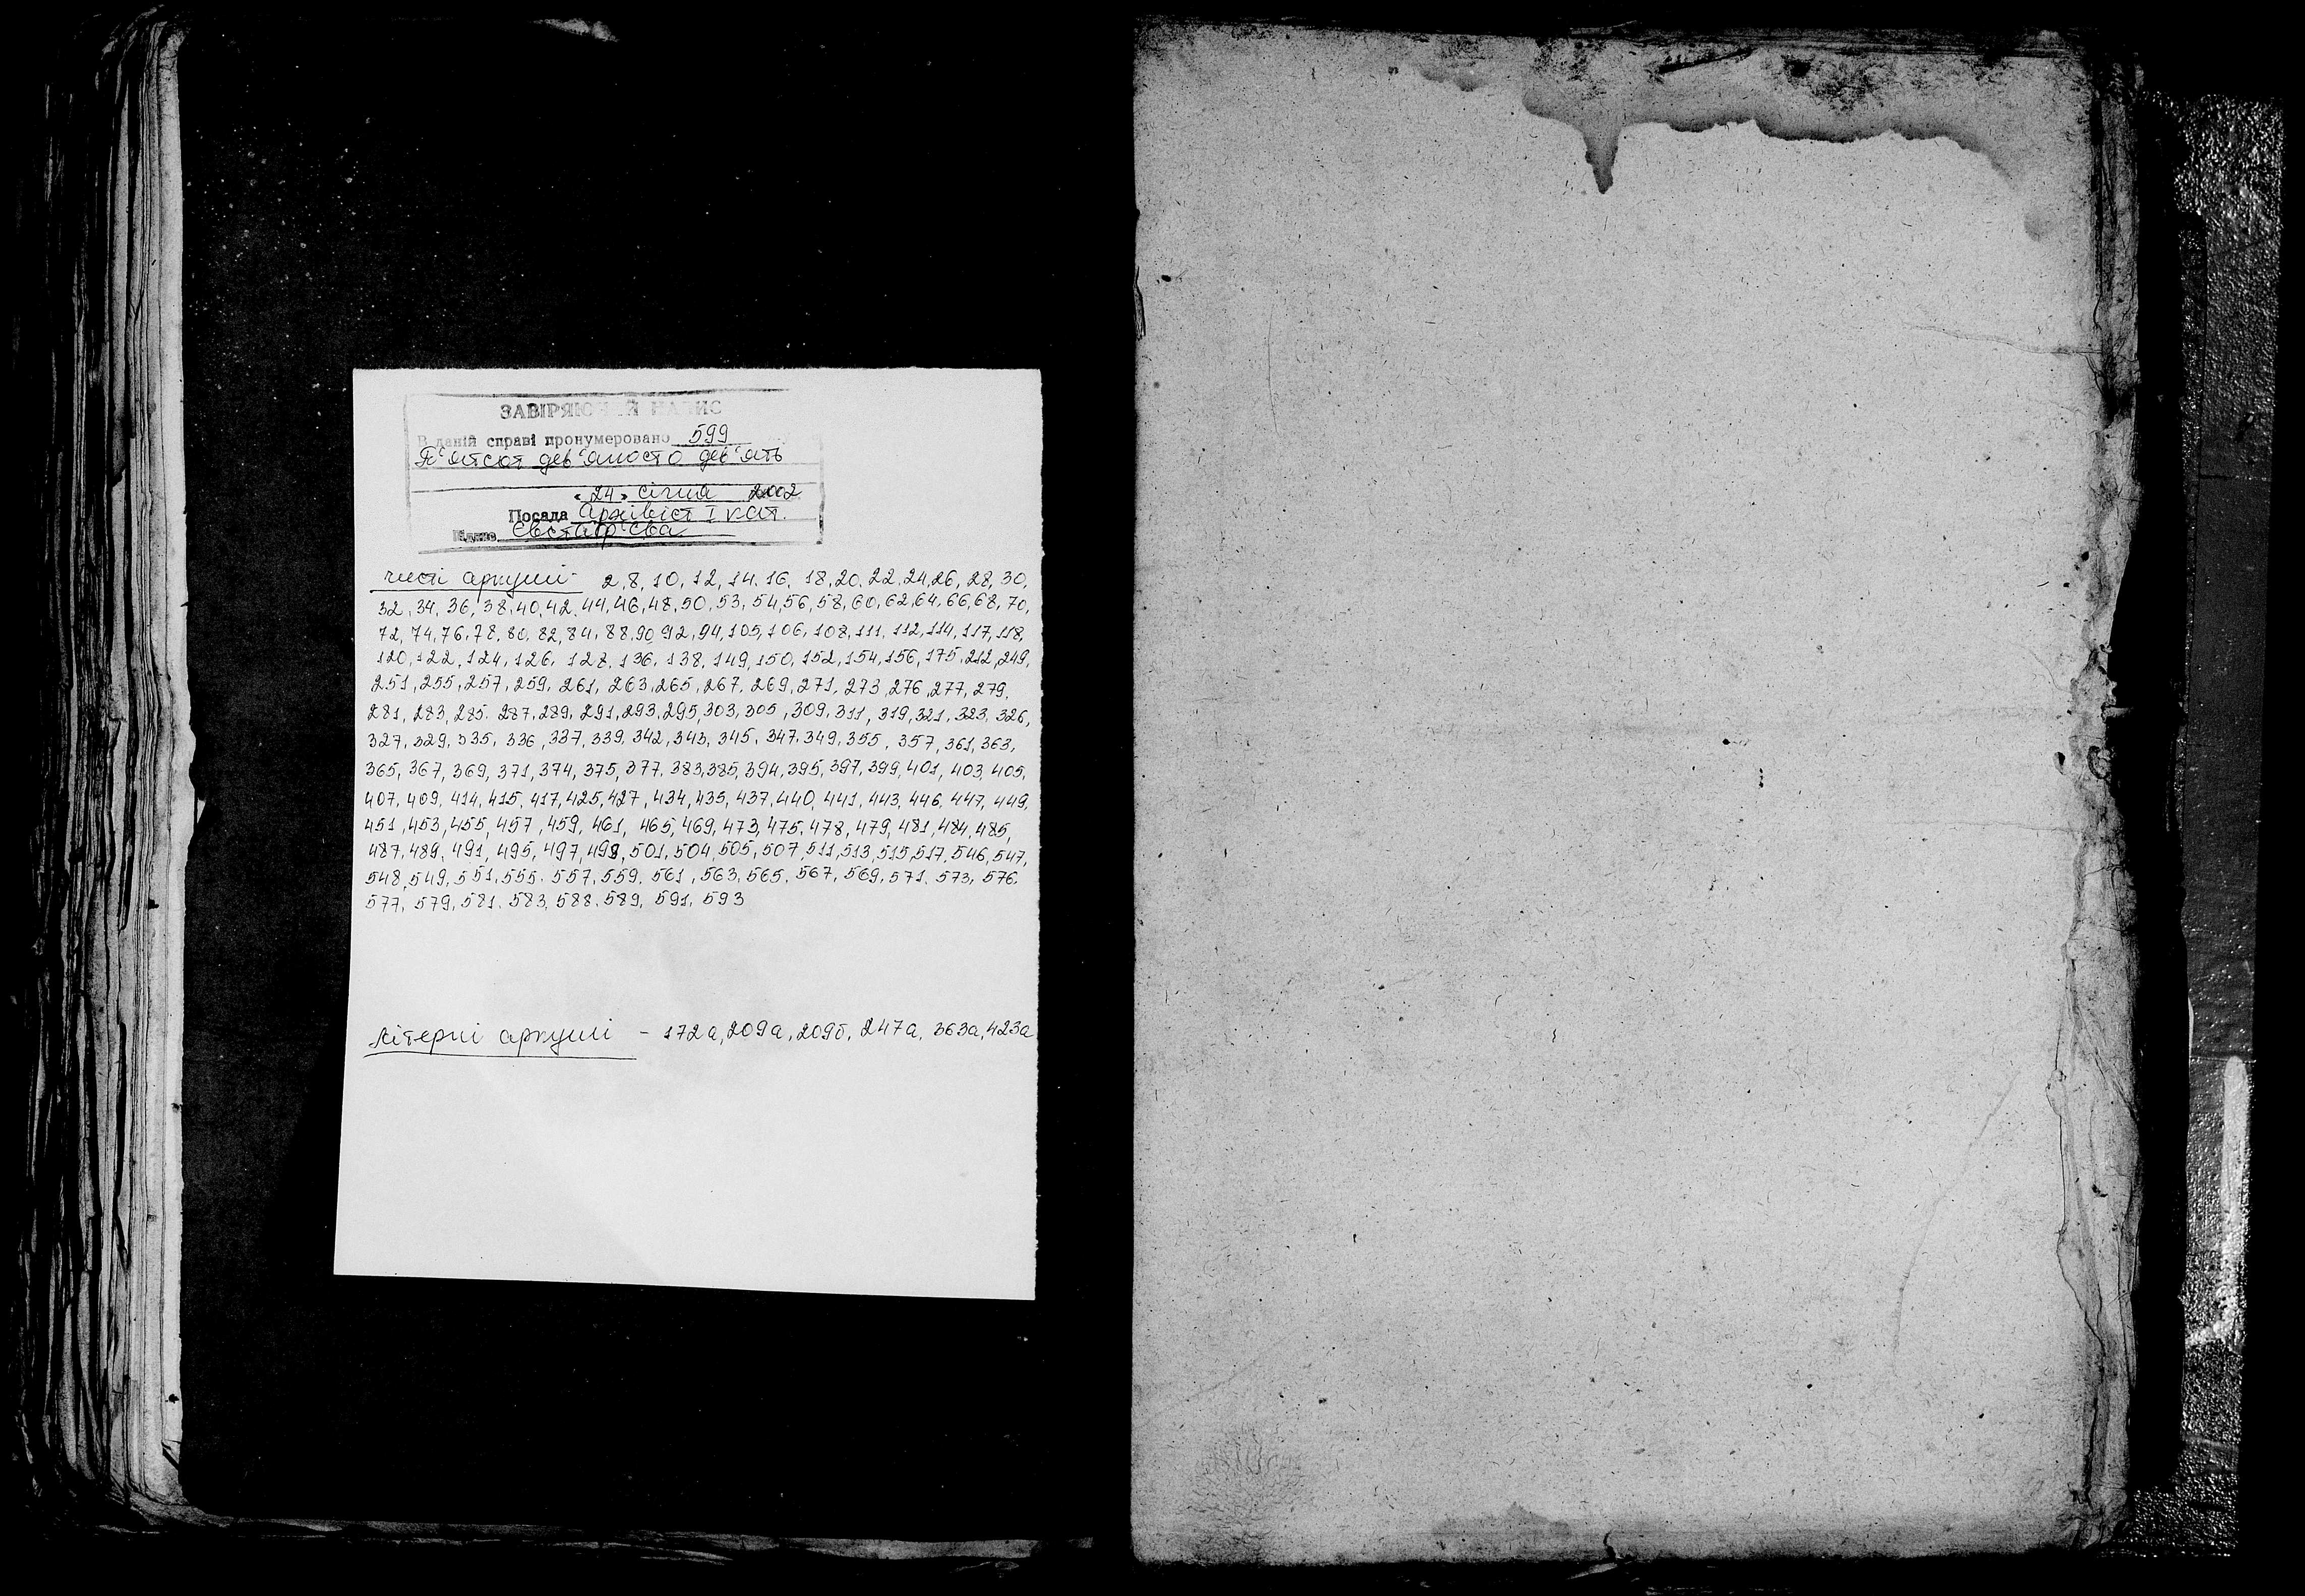 ЗАВІРЯЮЧИЙ НАПИС
В даній справі пронумеровано 599
П'ятсот дев'яносто дев'ять
«24» січня 2002
Посада Архівіст I кат.
Підпис Євстаф'єва
чисті аркуші - 2, 8, 10, 12, 14, 16, 18, 20, 22, 24, 26, 28, 30,
32, 34, 36, 38, 40, 42, 44, 46, 48, 50, 53, 54, 56, 58, 60, 62, 64, 66, 68, 70,
72, 74, 76, 78, 80, 82, 84, 88, 90, 92, 94, 105, 106, 108, 111, 112, 114, 117, 118,
120, 122, 124, 126, 128, 136, 138, 149, 150, 152, 154, 156, 175, 212, 249,
251, 255, 257, 259, 261, 263, 265, 267, 269, 271, 273, 276, 277, 279,
281, 283, 285, 287, 289, 291, 293, 295, 303, 305, 309, 311, 319, 321, 323, 326,
327, 329, 335, 336, 337, 339, 342, 343, 345, 347, 349, 355, 357, 361, 363,
365, 367, 369, 371, 374, 375, 377, 383, 385, 394, 395, 397, 399, 401, 403, 405,
407, 409, 414, 415, 417, 425, 427, 434, 435, 437, 440, 441, 443, 446, 447, 449,
451, 453, 455, 457, 459, 461, 465, 469, 473, 475, 478, 479, 481, 484, 485,
487, 489, 491, 495, 497, 499, 501, 504, 505, 507, 511, 513, 515, 517, 546, 547,
548, 549, 551, 555, 557, 559, 561, 563, 565, 567, 569, 571, 573, 576,
577, 579, 581, 583, 588, 589, 591, 593
літерні аркуші - 172а, 209а, 209б, 247а, 363а, 423а